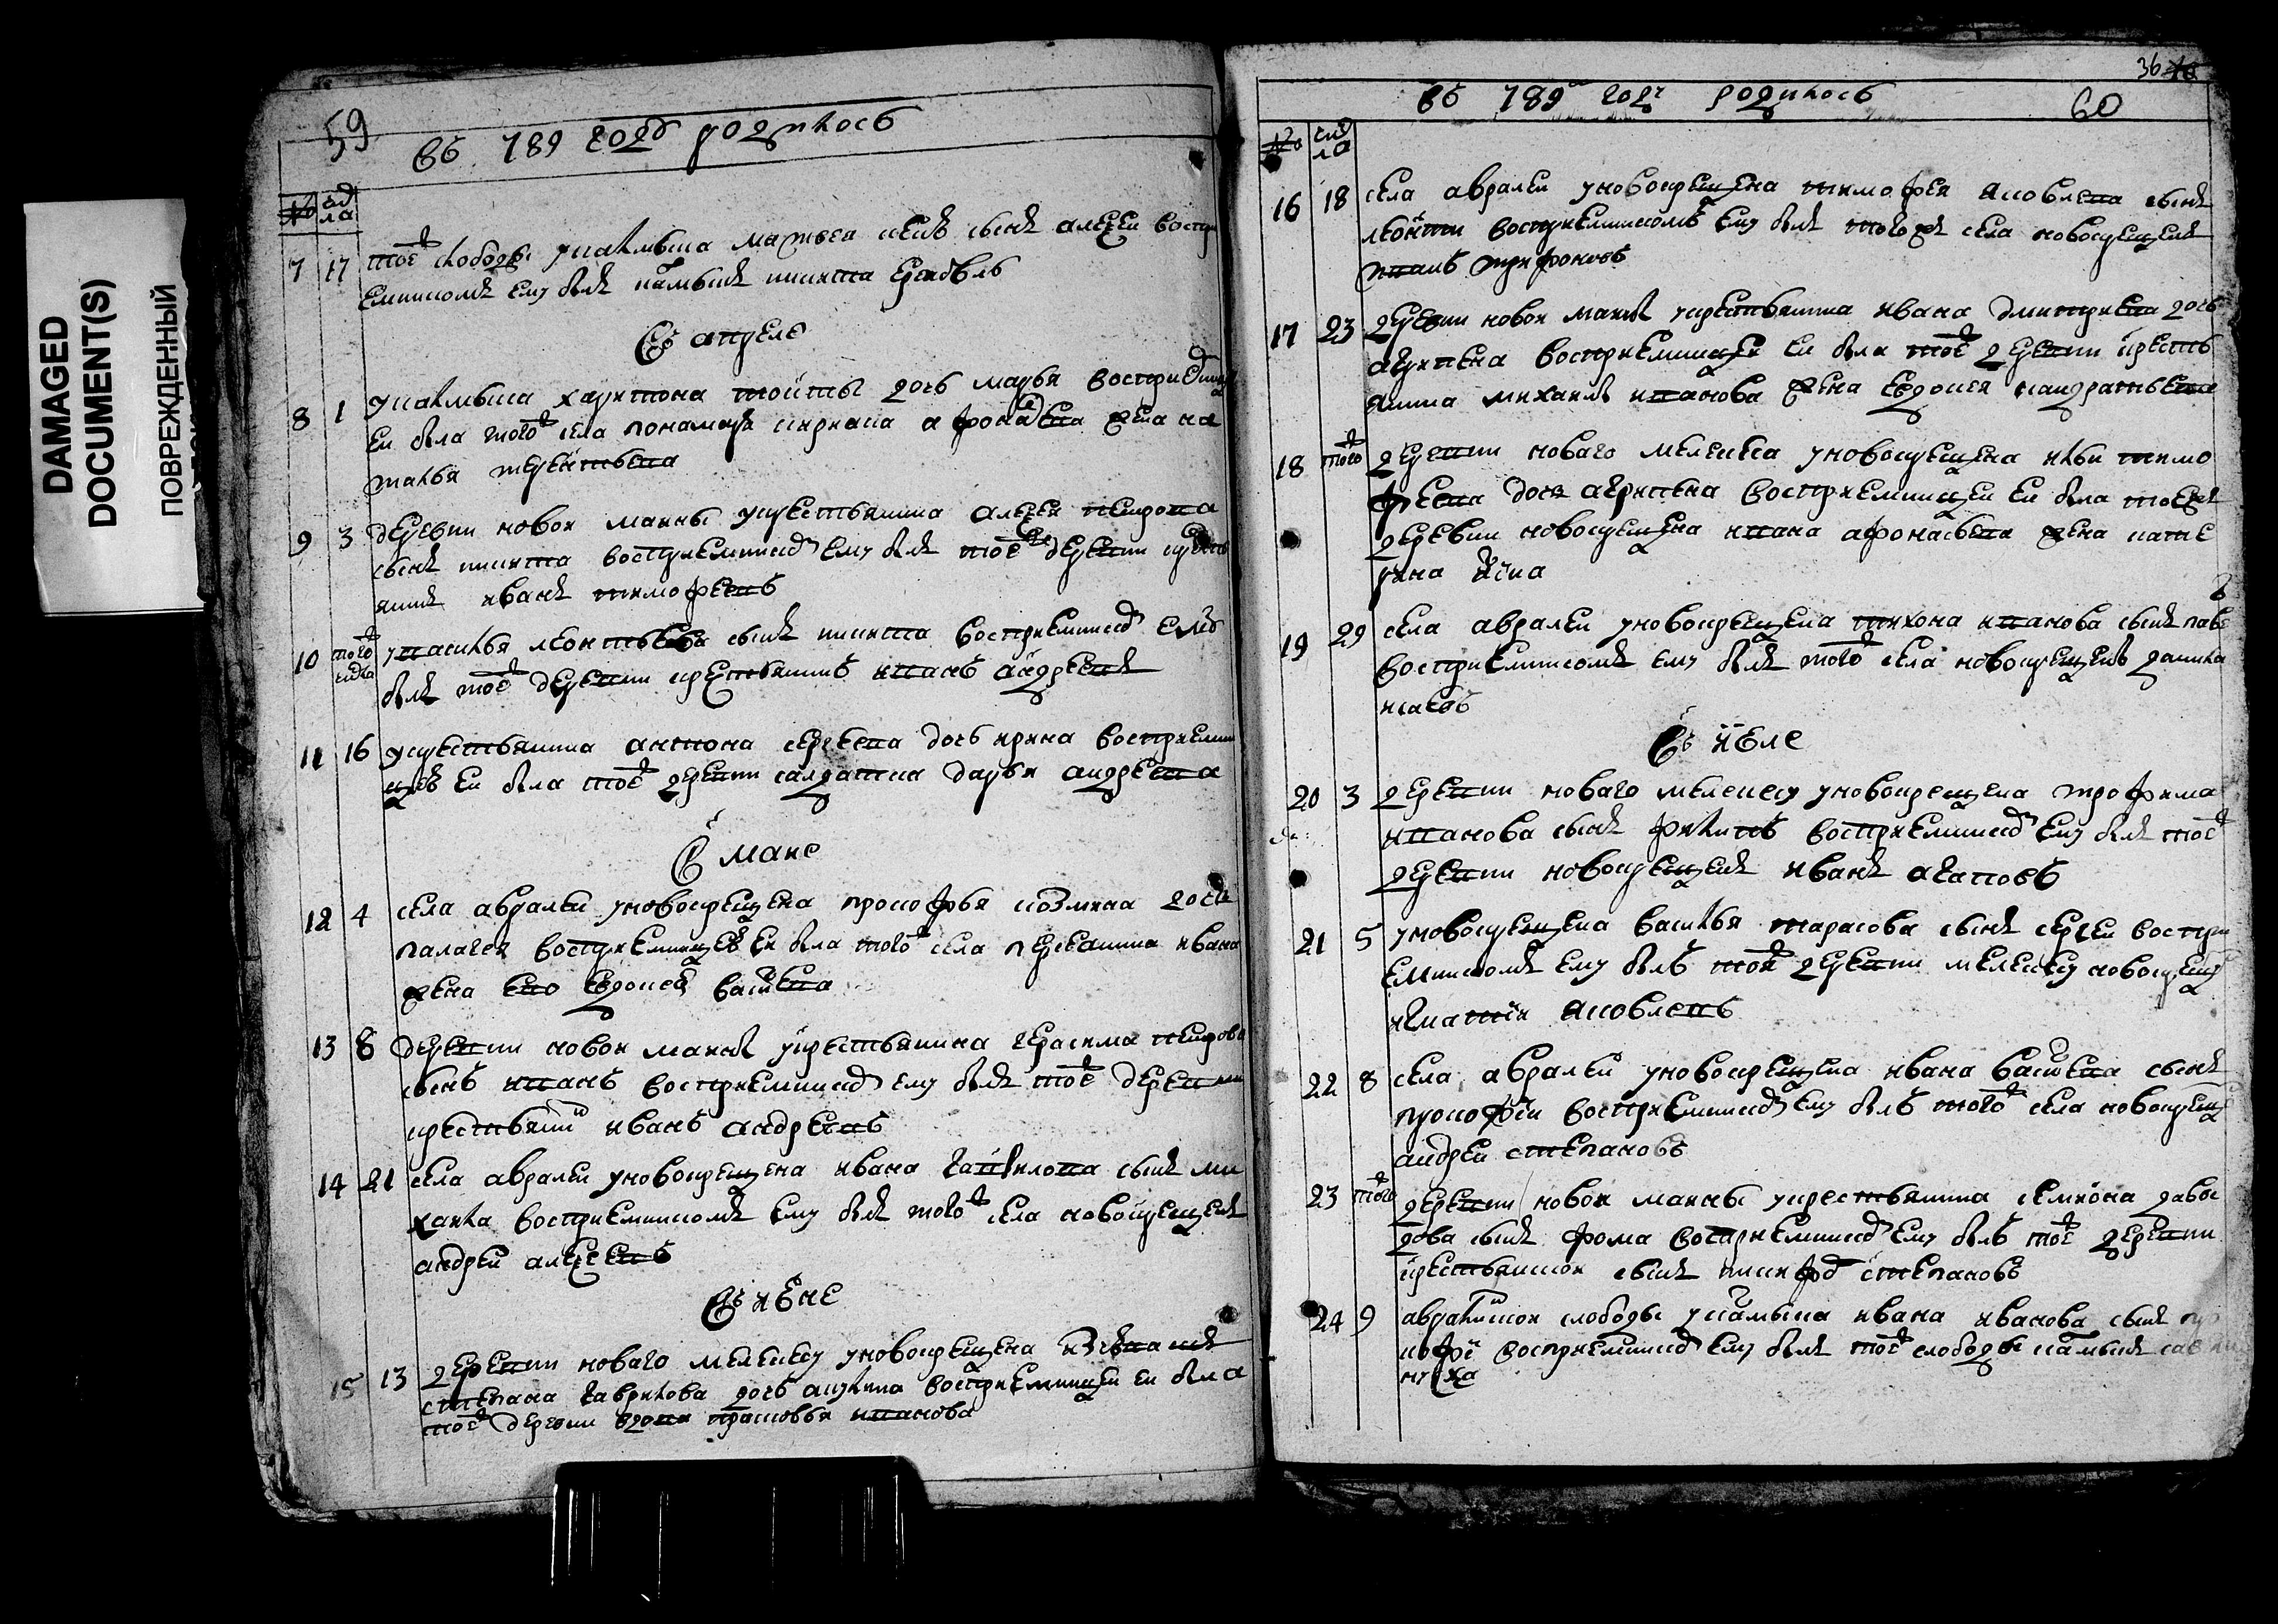 DAMAGED
DOCUMENT(S)
ПОВРЕЖДЕННЫЙ
59
въ 789 годъ родилось
№ числа
7 17 тоеж слободы укалмыка матвея сынъ алексеи воспри
емникомъ ему былъ калмыкъ никита
въ апреле
8 1 укалмыка харитона дочь марья восприемница
еи была тогож села понамаря кирнака афонасева жена на
талья терентьева
9 3 деревни новои маины укрестьянина алексея петрова
сынъ никита восприемникомъ ему былъ тоеже деревни кресть
янинъ иванъ тимофеевъ
10 того числа увасилья леонтьева сынъ никита восприемникомъ ему
былъ тоеж деревни крестьянинъ иванъ андреевъ
11 16 укрестьянина антона сергеева дочь ирина восприемни
цею еи была тоеж деревни салдатка дарья андреева
в маие
12 4 села авралеи уновокрещена прокофья козмина дочь
палагея восприемницею еи была тогож села ивана
жена ево евдокея васильева
13 8 деревни новои маины укрестьянина герасима петрова
сынъ иванъ восприемникомъ ему былъ тоеж деревни
крестьянинъ иванъ андреевъ
14 21 села авралеи уновокрещена ивана гаврилова сынъ ми
хаила восприемникомъ ему былъ тогож села новокрещенъ
андреи алексеевъ
въ июне
15 13 деревни новаго мелекесу уновокрещена
степана гаврилова дочь акулина восприемницеи еи была
тоеж деревни вдова прасковья иванова
36
въ 789м году родилось 60
№ числа
16 18 села авралеи уновокрещена тимофея яковлева сынъ
леонти восприемникомъ ему былъ тогожъ села новокрещенъ
иванъ трифоновъ
17 23 деревни новои маины укрестьянина ивана дмитриева дочь
агрипена восприемницеи еи была тоеж деревни кресть
янина михаила иванова жена евдокея кандратьева
18 того деревни новаго мелекеса уновокрещена ильи тимо
феева дочь агрипена восприемницеи еи была тоежъ
деревни новокрещена ивана афонасьева жена кате
рина
19 29 села авралеи уновокрещена тихона иванова сынъ паве
восприемникомъ ему былъ тогож села новокрещенъ данила
исаевъ
въ июле
20 3 деревни новаго мелекесу уновокрещена трофима
иванова сынъ филипъ восприемникомъ ему былъ тоеж
деревни новокрещенъ иванъ агаповъ
21 5 уновокрещена василья тарасова сынъ сергеи воспри
емникомъ ему былъ тоеж деревни мелекесу новокрещенъ
игнатеи яковлевъ
22 8 села авралеи уновокрещена ивана васильева сынъ
прокофеи восприемникомъ ему былъ тогож села новокрещенъ
андреи степановъ
23 того деревни новои маины укрестьянина семиона давы
дова сынъ фома восприемникомъ ему былъ тоеж деревни
крестьянскои сынъ никифоръ степановъ
24 9 авралинскои слободы укалмыка ивана иванова сынъ про
кофеи восприемникомъ ему былъ тоеж слободы калмыкъ